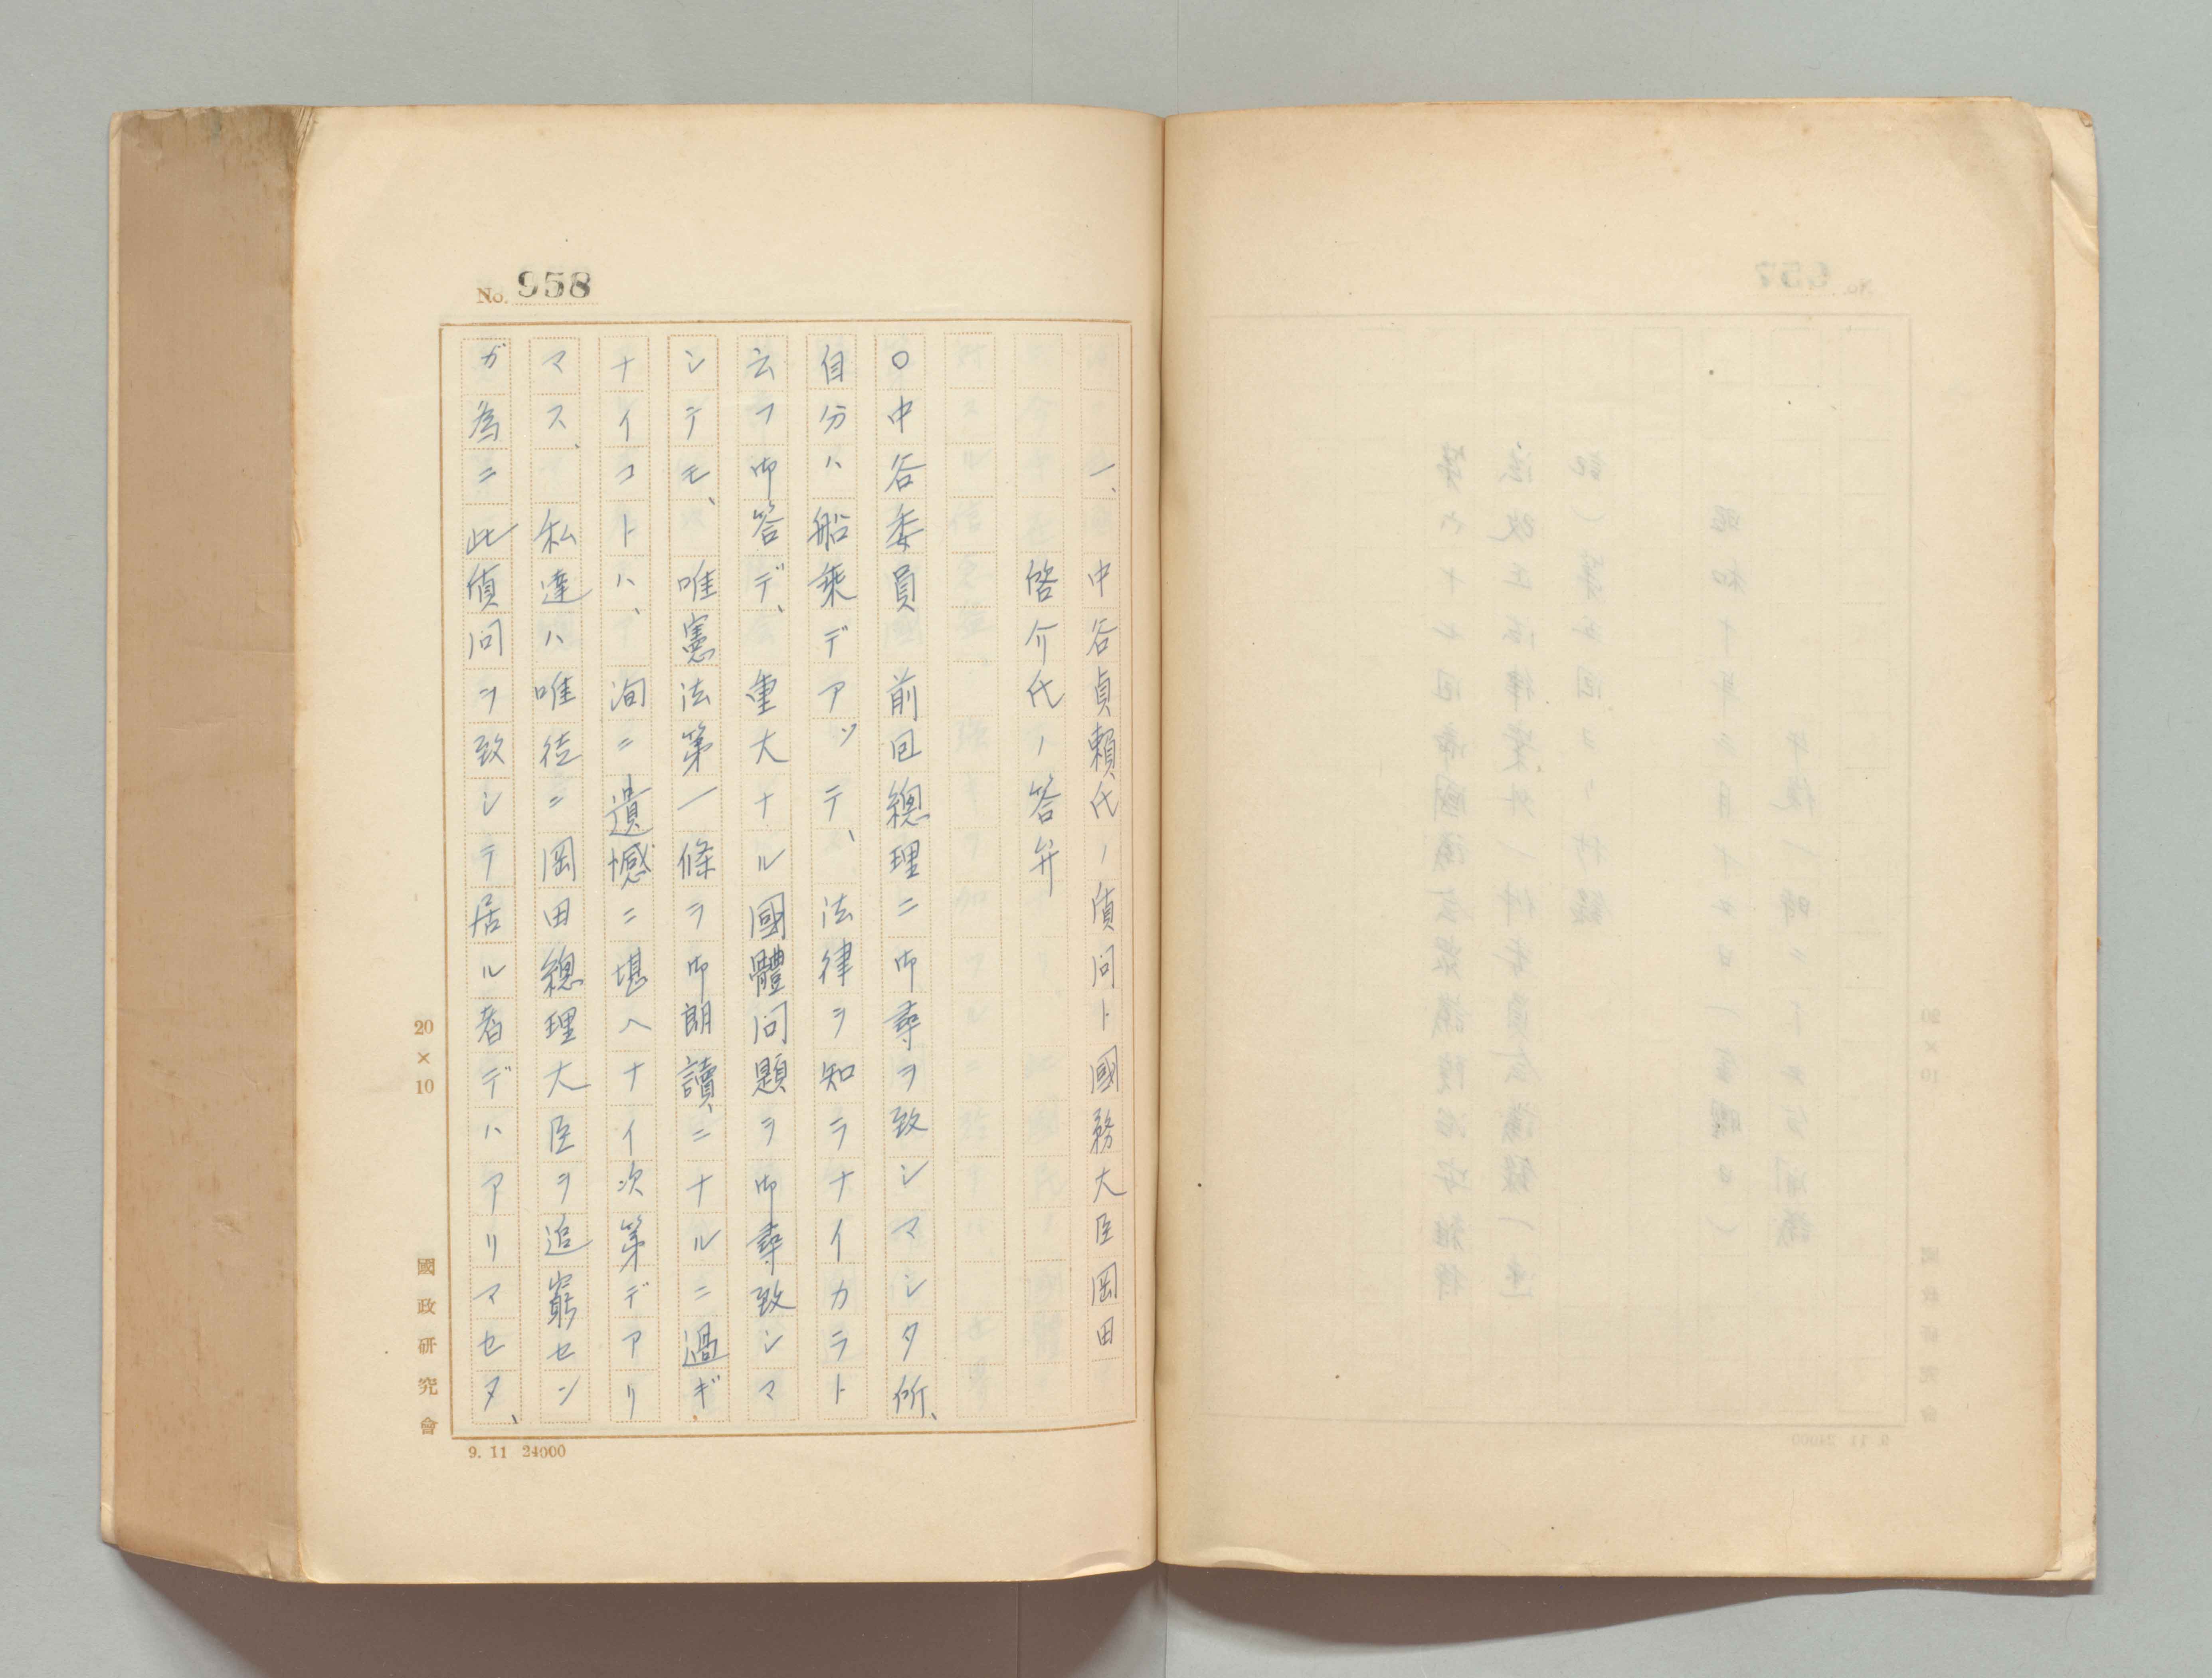 No. 958
一、中谷貞頼氏ノ質問ト國務大臣岡田
啓介氏ノ答弁
〇中谷委員 前回總理ニ御尋ヲ致シマシタ所、
自分ハ船乗デアッテ、法律ヲ知ラナイカラト
云フ御答デ、重大ナル國體問題ヲ御尋致シマ
シテモ、唯憲法第一條ヲ御朗讀ニナルニ過ギ
ナイコトハ、洵ニ遺憾ニ堪ヘナイ次第デアリ
マス、私達ハ唯徒ニ岡田總理大臣ヲ追窮セン
ガ為ニ此質問ヲ致シテ居ル者デハアリマセヌ、
20×10
國政研究會
9. 11 24000